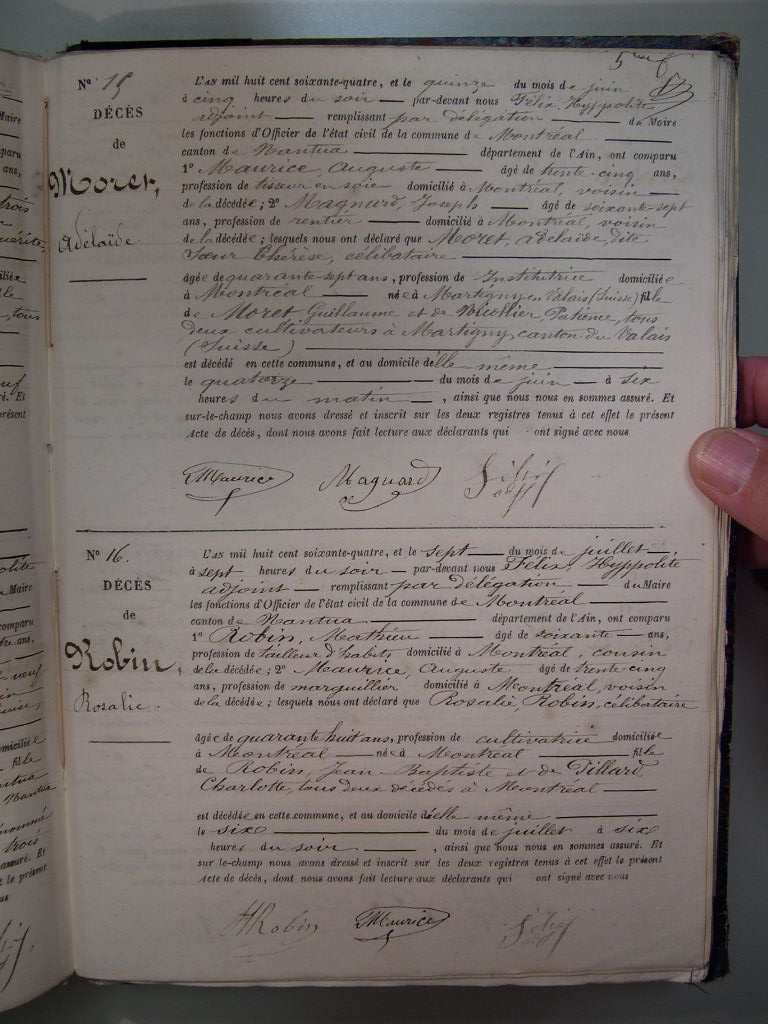 Nº 15
DÉCÈS
de
Moret,
Adélaïde
L'AN mil huit cent soixante-quatre, et le quinze du mois de juin
à cinq heures du soir — par-devant nous Félix, Hyppolite
adjoint — remplissant par délégation — du Maire
les fonctions d'Officier de l'état civil de la commune de Montréal —
canton de Nantua — département de l'Ain, ont comparu
1º Maurice, Auguste — âgé de trente-cinq ans,
profession de tisseur en soie domicilié à Montréal, voisin —
de la décédée; 2º Magnard, Joseph — âgé de soixante-sept
ans, profession de rentier — domicilié à Montréal, voisin
de la décédée; lesquels nous ont déclaré que Moret, adelaide, dite
Sœur Chérèse, célibataire —
âgée de quarante-sept ans, profession de Institutrice domiciliée
à Montréal — née à Martigny en Valais (Suisse) fille
de Moret Guillaume et de tous
deux cultivateurs à Martigny, canton du Valais
(Suisse) —
est décédé en cette commune, et au domicile d'elle même —
le quatorze — du mois de juin — à six
heures du matin —, ainsi que nous nous en sommes assuré. Et
sur-le-champ nous avons dressé et inscrit sur les deux registres tenus à cet effet le présent
Acte de décès, dont nous avons fait lecture aux déclarants qui ont signé avec nous
Maurice Magnard Félix
adj
Nº 16.
DÉCÈS
de
Robin,
Rosalie.
L'AN mil huit cent soixante-quatre, et le sept — du mois de juillet —
à sept heures du soir — par-devant nous Félix, Hyppolite
adjoint — remplissant par délégation — du Maire
les fonctions d'Officier de l'état civil de la commune de Montréal —
canton de Nantua — département de l'Ain, ont comparu
1º Robin, Mathieu — âgé de soixante — ans,
profession de tailleur d'habits domicilié à Montréal, cousin
de la décédée; 2º Maurice, Auguste âgé de trente cinq
ans, profession de marguillier domicilié à Montréal, voisin
de la décédée; lesquels nous ont déclaré que Rosalie Robin, célibataire
âgée de quarante huit ans, profession de cultivatrice domiciliée
à Montréal — née à Montréal — fille
de Robin, Jean-Baptiste et de Tillard
Charlotte, tous deux décédés à Montréal —
est décédée en cette commune, et au domicile d'elle même —
le six — du mois de juillet à six
heures du soir —, ainsi que nous nous en sommes assuré. Et
sur-le-champ nous avons dressé et inscrit sur les deux registres tenus à cet effet le présent
Acte de décès, dont nous avons fait lecture aux déclarants qui ont signé avec nous
Robin Maurice Félix
adj